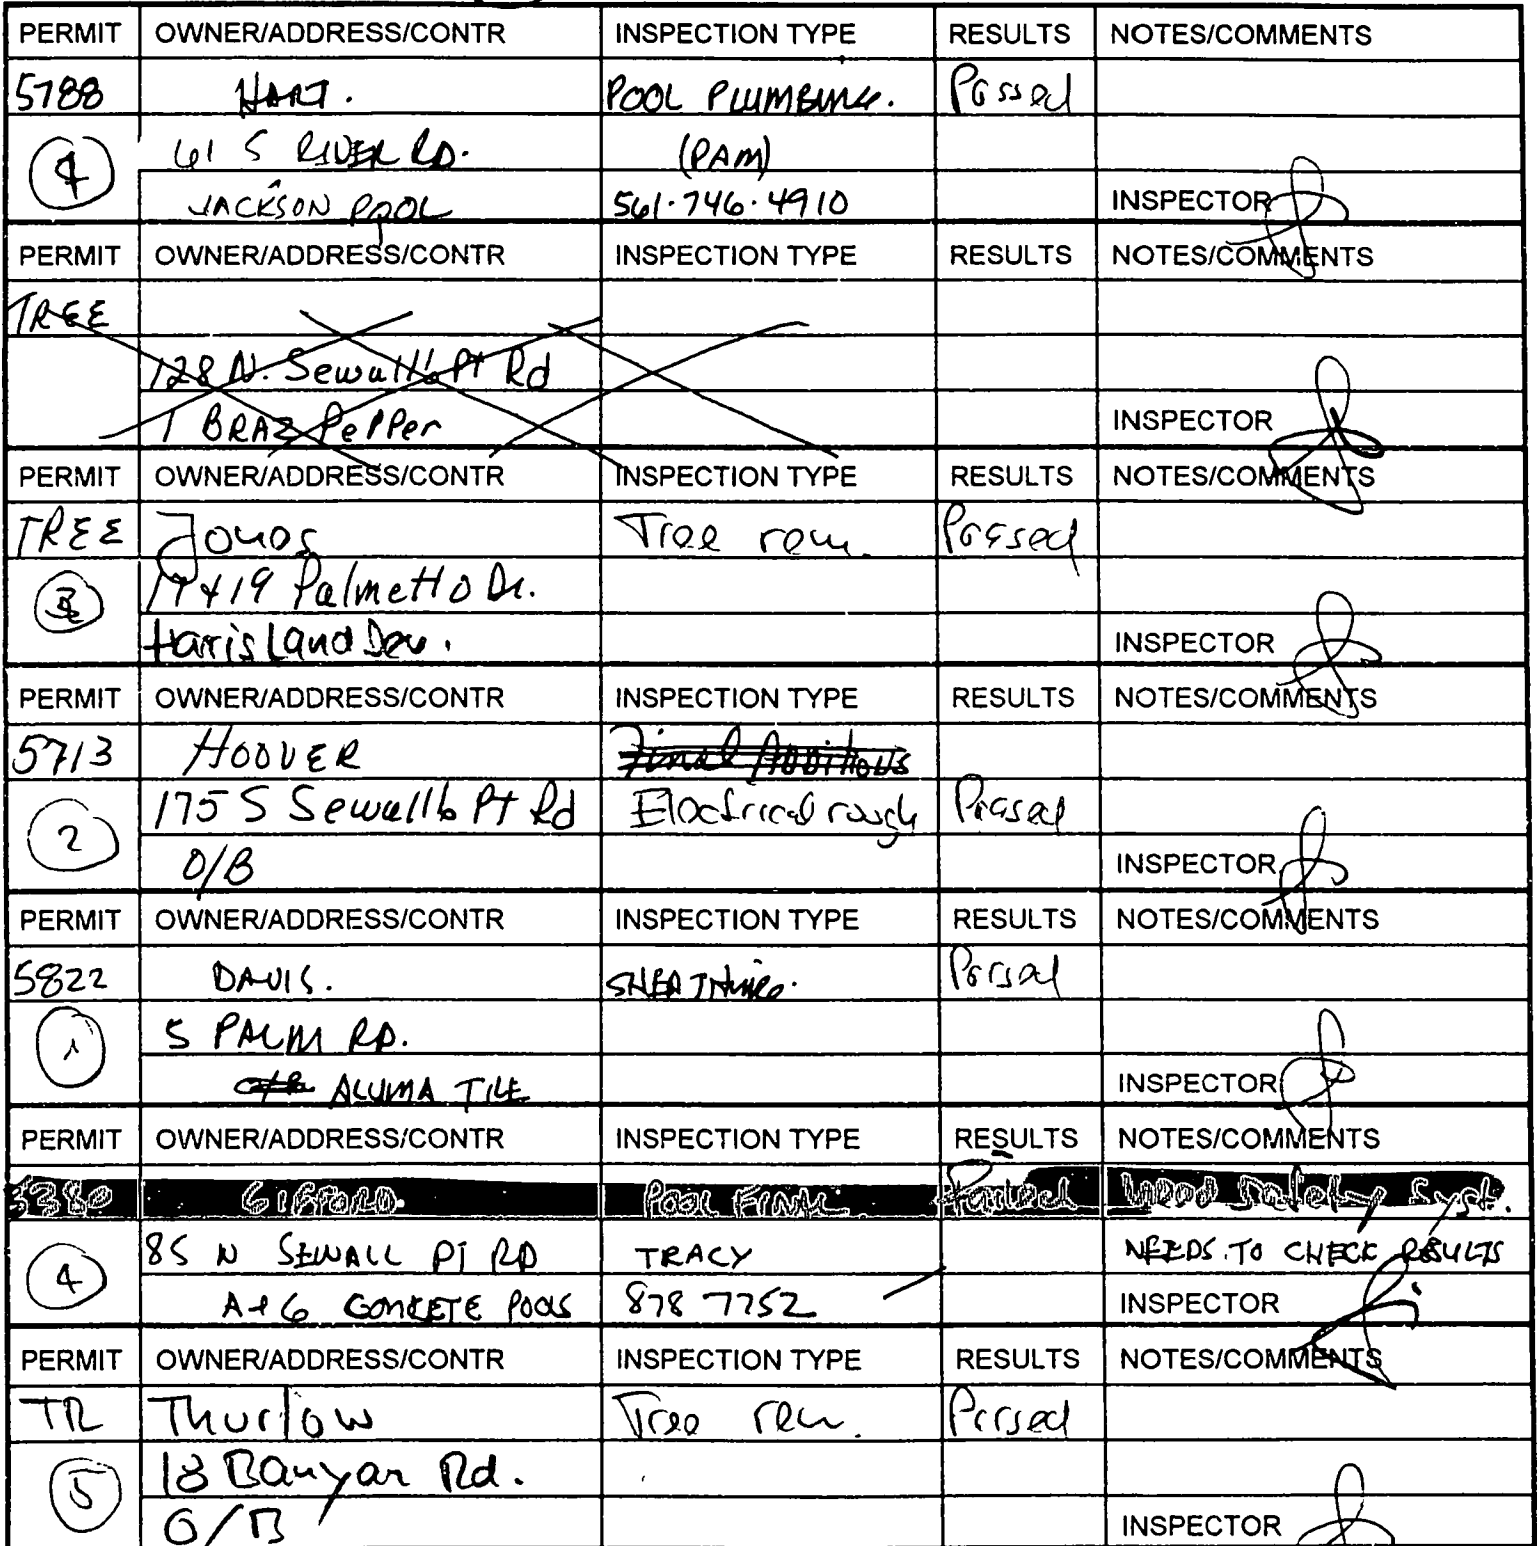 PERMIT OWNER/ADDRESS/CONTR INSPECTION TYPE RESULTS NOTES/COMMENTS
5788 HART. POOL PLUMBING. Passed
61 S RIVER RD. (PAM)
JACKSON POOL 561.746.4910 INSPECTOR
PERMIT OWNER/ADDRESS/CONTR INSPECTION TYPE RESULTS NOTES/COMMENTS
TREE
128 N. Sewall's Pt Rd
1 BRAZ PePPer INSPECTOR
PERMIT OWNER/ADDRESS/CONTR INSPECTION TYPE RESULTS NOTES/COMMENTS
TREE Jones Tree rem. Passed
17+19 Palmetto Dr.
Harris Land Dev. INSPECTOR
PERMIT OWNER/ADDRESS/CONTR INSPECTION TYPE RESULTS NOTES/COMMENTS
5713 HOOVER Final Additions
2 175 S Sewall's Pt Rd Electrical rough Passed
O/B INSPECTOR
PERMIT OWNER/ADDRESS/CONTR INSPECTION TYPE RESULTS NOTES/COMMENTS
5822 DAVIS. SHEATHING. Passed
1 5 PALM RD.
ALUMA TILE INSPECTOR
PERMIT OWNER/ADDRESS/CONTR INSPECTION TYPE RESULTS NOTES/COMMENTS
5380 GIFFORD. POOL FINAL. Need Safety Syst.
4 85 N SEWALL PT RD TRACY NEEDS TO CHECK RESULTS
A+G CONCRETE POOLS 878 7752 INSPECTOR
PERMIT OWNER/ADDRESS/CONTR INSPECTION TYPE RESULTS NOTES/COMMENTS
TR Thurlow Tree rem. Passed
5 18 Banyan Rd.
O/B INSPECTOR